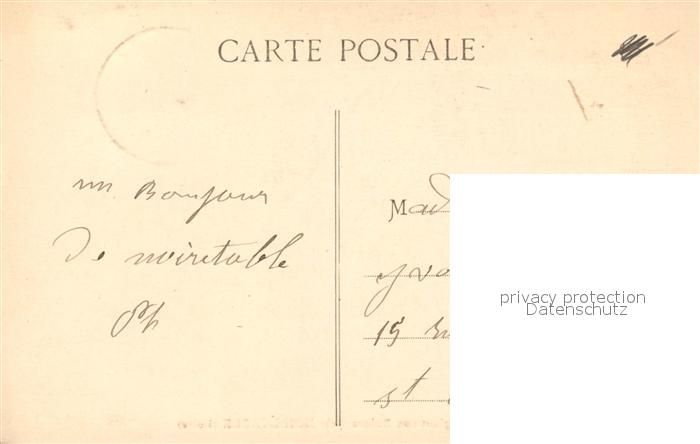 CARTE POSTALE
un Bonjour
De noiretable
Mad
yvo
privacy protection
Datenschutz
15 ru
st